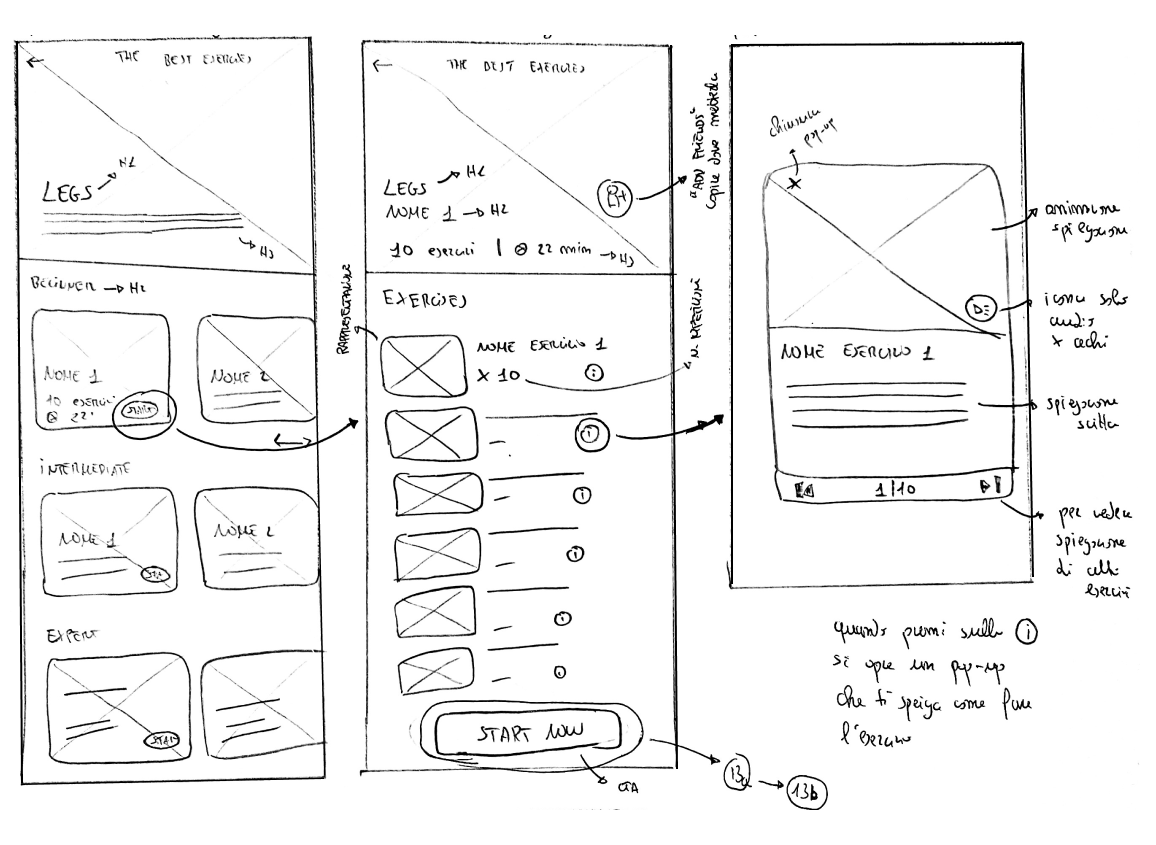 THE BEST EXERCISES
LEGS
H1
H3
BEGINNER → H2
NOME 1
10 esercizi
22'
START
NOME 2
INTERMEDIATE
NOME 1
STA
NOME 2
EXPERT
START
THE BEST EXERCISES
LEGS → H1
NOME 1 → H2
10 esercizi | 22 min → H3
"ADD FRIENDS"
EXERCISES
NOME ESERCIZIO 1
X 10
i
N. RIPETIZIONI
i
i
i
i
i
START NOW
CTA
13a → 13b
chiusura
pop-up
X
animazione
spiegazione
icona solo
audio
x ciechi
NOME ESERCIZIO 1
spiegazione
scritta
1/10
per vedere
spiegazione
di altri
esercizi
quando premi sulla i
si apre un pop-up
che ti spiega come fare
l'esercizio